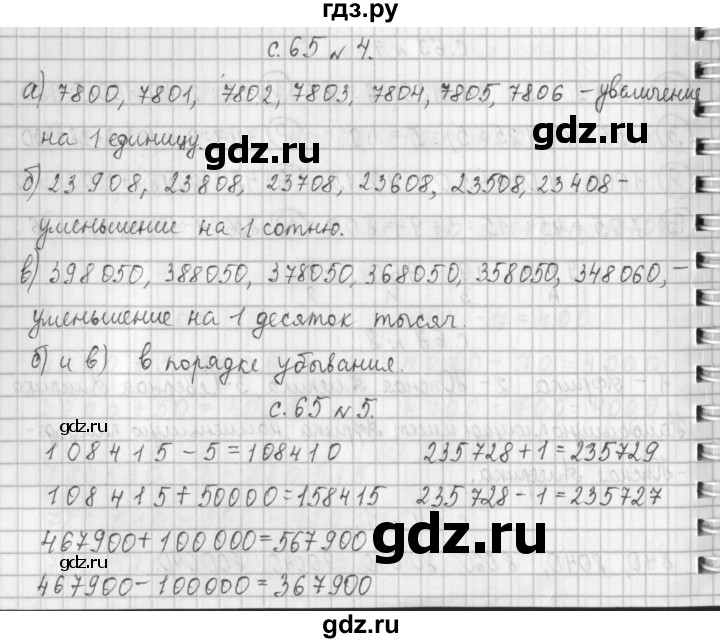 гдз.ру
с. 65 № 4.
а) 7800, 7801, 7802, 7803, 7804, 7805, 7806 – увеличение
на 1 единицу.
б) 23 908, 23 808, 23708, 23608, 23508, 23 408 –
уменьшение на 1 сотню.
в) 398050, 388050, 378050, 368050, 358050, 348060, –
уменьшение на 1 десяток тысяч.
б) и в) в порядке убывания.
с. 65 № 5.
108415 – 5 = 108410 235728 + 1 = 235729
108415 + 50000 = 158415 235728 – 1 = 235727
467900 + 100 000 = 567900
467900 – 100000 = 367900
gdz.ru
gdz.ru
gdz.ru
gdz.ru
gdz.ru